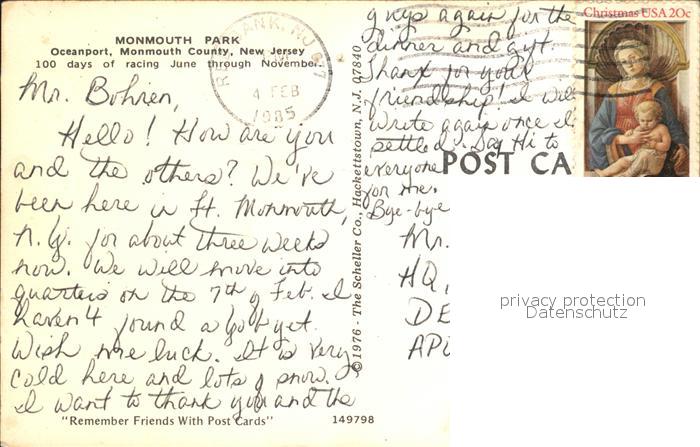 MONMOUTH PARK
Oceanport, Monmouth County, New Jersey
100 days of racing June through November.
Mr. Bohren,
Hello! How are you
and the others? We've
been here in Ft. Monmouth,
N.J. for about three weeks
now. We will move into
quarters on the 7th of Feb. I
haven't found a job yet.
Wish me luck. It is very
cold here and lots of snow.
I want to thank you and the
"Remember Friends With Post Cards"
149798
© 1976 - The Scheller Co., Hackettstown, N.J. 07840
guys again for the
dinner and gift.
Thanx for your
friendship! I will
write again once I'm
settled. Say Hi to
everyone
for me.
Bye-bye
4 FEB
1985
Christmas USA 20c
POST CA
Mr.
HQ,
DE
AP
privacy protection
Datenschutz